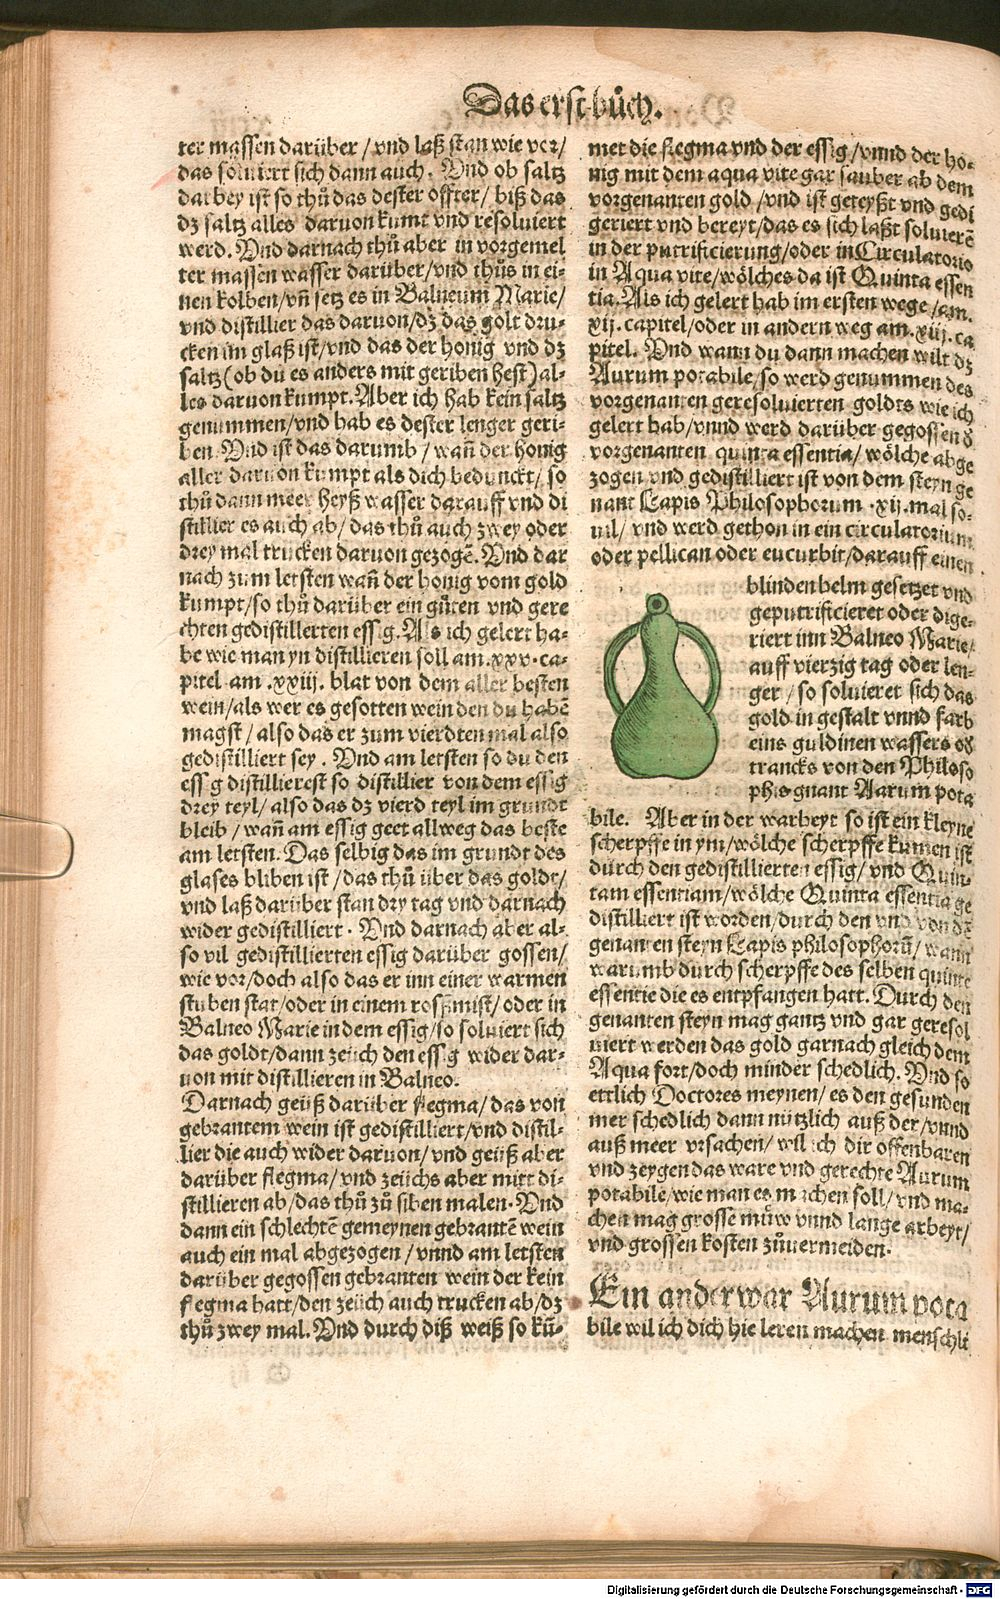 Das erst bůch.
ter massen darüber / vnd laß stan wie vor /
das soluiert sich dann auch. Vnd ob saltz
darbey ist so thů das dester offter / biß das
dz saltz alles daruon kumt vnd resoluiert
werd. Vnd darnach thů aber in vorgemel
ter massen wasser darüber / vnd thůs in ei-
nen kolben / vñ setz es in Balneum Marie /
vnd distillier das daruon / dz das golt dru-
cken im glaß ist / vnd das der honig vnd dz
saltz (ob du es anders mit geriben hest) al-
les daruon kumpt. Aber ich hab kein saltz
genummen / vnd hab es dester lenger geri-
ben. Vnd ist das darumb / wañ der honig
aller daruon kumpt als dich bedunckt / so
thů dann meer heyß wasser darauff vnd di
stillier es auch ab / das thů auch zwey oder
drey mal trucken daruon gezogē. Vnd dar
nach zum letsten wañ der honig vom gold
kumpt / so thů darüber ein gůten vnd gere
chten gedistillerten essig. Als ich gelert ha-
be wie man yn distillieren soll am .xxv. ca-
pitel am .xxiij. blat von dem aller besten
wein / als wer es gesotten wein den du habē
magst / also das er zum vierdten mal also
gedistilliert sey. Vnd am letsten so du den
essig distillierest so distillier von dem essig
drey teyl / also das dz vierd teyl im grundt
bleib / wañ am essig geet allweg das beste
am letsten. Das selbig das im grundt des
glases bliben ist / das thů über das goldt /
vnd laß darüber stan dry tag vnd darnach
wider gedistilliert. Vnd darnach aber al-
so vil gedistillierten essig darüber gossen /
wie vor / doch also das er inn einer warmen
stuben stat / oder in einem rossmist / oder in
Balneo Marie in dem essig / so soluiert sich
das goldt / dann zeüch den essig wider dar-
uon mit distillieren in Balneo.
Darnach geüß darüber flegma / das von
gebrantem wein ist gedistilliert / vnd distil-
lier die auch wider daruon / vnd geüß aber
darüber flegma / vnd zeüchs aber mitt di-
stillieren ab / das thů zů siben malen. Vnd
dann ein schlechtē gemeynen gebrantē wein
auch ein mal abgezogen / vnnd am letsten
darüber gegossen gebranten wein der kein
flegma hatt / den zeüch auch trucken ab / dz
thů zwey mal. Vnd durch diß weiß so kũ-
met die flegma vnd der essig / vnnd der ho-
nig mit dem aqua vite gar sauber ab dem
vorgenanten gold / vnd ist geteyßt vnd gedi
geriert vnd bereyt / das es sich laßt soluierē
in der putrificierung / oder in Circulatorio
in Aqua vite / wölches da ist Quinta essen
tia. Als ich gelert hab im ersten wege / am.
xij. capitel / oder in andern weg am .xiij. ca
pitel. Vnd wann du dann machen wilt dz
Aurum potabile / so werd genummen des
vorgenanten geresoluierten goldts wie ich
gelert hab / vnnd werd darüber gegossen d
vorgenanten quinta essentia / wölche abge
zogen vnd gedistilliert ist von dem steyn ge
nant Lapis Philosophorum .xij. mal so-
uil / vnd werd gethon in ein circulatorium
oder pellican oder cucurbit / darauff einen
blinden helm gesetzet vnd
geputrificieret oder dige-
riert inn Balneo Marie /
auff vierzig tag oder len-
ger / so soluieret sich das
gold in gestalt vnnd farb
eins guldinen wassers od
trancks von den Philoso
phis gnant Aurum pota
bile. Aber in der warheyt so ist ein kleyne
scherpffe in ym / wölche scherpffe kumen ist
durch den gedistillierten essig / vnd Quin-
tam essentiam / wölche Quinta essentia ge
distilliert ist worden / durch den vnd von dē
genanten steyn Lapis philosophorũ / wann
warumb durch scherpffe des selben quinte
essentie die es entpfangen hatt. Durch den
genanten steyn mag gantz vnd gar geresol
uiert werden das gold garnach gleich dem
Aqua fort / doch minder schedlich. Vnd so
ettlich Doctores meynen / es den gesunden
mer schedlich dann nützlich auß der / vnnd
auß meer vrsachen / wil ich dir offenbaren
vnd zeygen das ware vnd gerechte Aurum
potabile / wie man es machen soll / vnd ma-
chen mag grosse müw vnnd lange arbeyt /
vnd grossen kosten zůuermeiden.
Ein ander war Aurum pota
bile wil ich dich hie leren machen menschli
Digitalisierung gefördert durch die Deutsche Forschungsgemeinschaft - DFG